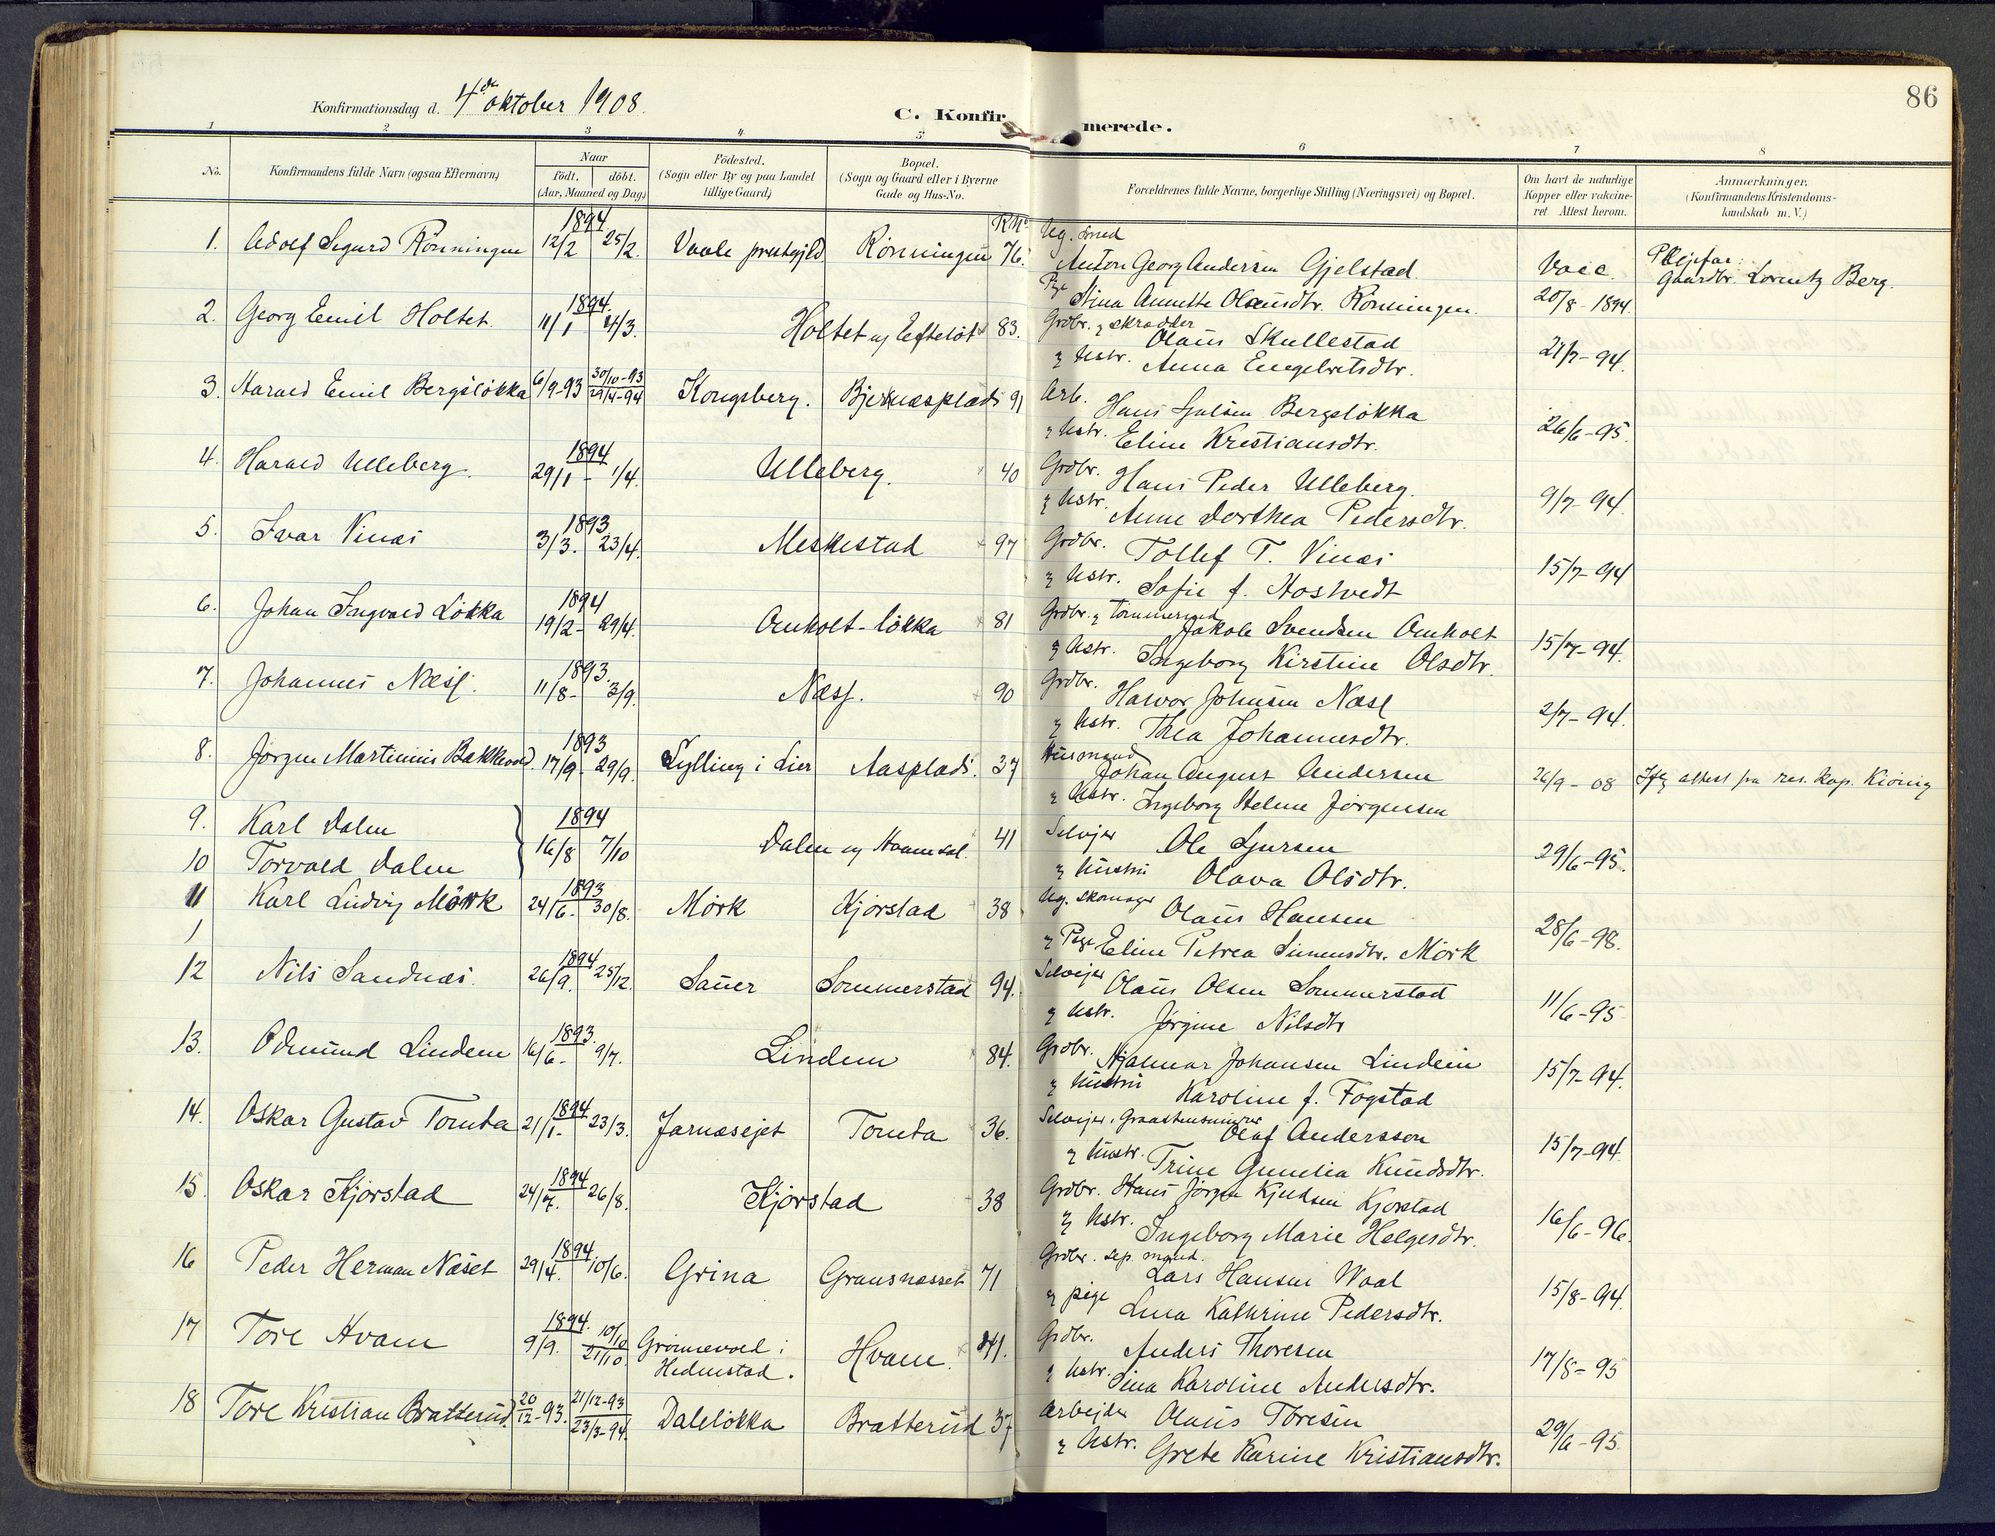 86
Konfirmationsdag d. 4de oktober 1908.
C. Konfirmerede.
1 2 3 4 5 6 7 8
No. Konfirmandens fulde Navn (ogsaa Efternavn) Naar Födt. döbt. (Aar, Maaned og Dag) Födested. (Sogn eller By og paa Landet tillige Gaard) Bopæl. (Sogn og Gaard eller i Byerne Gade og Hus-No. Forældrenes fulde Navne, borgerlige Stilling (Næringsvei) og Bopæl. Om havt de naturlige Kopper eller vaccineret Attest herom. Anmærkninger. (Konfirmandens Kristendomskundskab m. V.)
1. Adolf Sigurd Rønningen 1894 12/2 25/2. Vaale prestgjld Rønningen 76. Ug. Smed Anton Georg Andersen Gjelstad Pige Nina Annette Olausdtr. Rønningen. Vacc. 20/8-1894. Plejefar: Gaardbr. Lorentz Berg.
2. Georg Emil Holtet 1894. 11/1 4/3. Holtet ug Efteløt 83. Grdbr. & skrædder Olaus Skullestad & Ustr. Anna Engebretsdtr. 21/7-94.
3. Harald Emil Bergsløkka 6/9-93 30/10-93 29/4-94 Kongsberg. Bjernæsplads 91 Arb. Hans Julsen Bergsløkka & Hstr. Eline Kristiansdtr. 26/6-95.
4. Harald Ulleberg. 1894 29/1 - 1/4. Ulleberg. 40 Grdbr. Hans Peder Ulleberg. & Hstr. Anne Dorthea Pedersdtr. 9/7-94.
5. Ivar Vinæs 1893 3/3. 23/4. Meskestad 97 Grdbr. Tollef T. Vinæs & Hstr. Sofie f. Hostvedt 15/7-94
6. Johan Ingvald Løkka 1894 19/2- 29/4. Omholt-løkka 81 Grdbr. & Tømmermd Jakob Svendsen Omholt & Hstr. Ingeborg Kirstine Olsdtr. 15/7-94.
7. Johannes Næss. 1893. 11/8- 3/9. Næss. 90 Grdbr. Halvor Johnsen Næss & Hstr. Thea Johannesdtr. 2/7-94.
8. Jørgen Martinius Bakkevold. 1893 17/9- 29/9. Sylling i Lier Aasplads. 37 Husmand Johan August Andersen & Hstr. Ingeborg Helene Jørgensen 26/9-08 Ifg attest fra res. kap. Kiønig
9. Karl Dalen
10 Torvald Dalen 1894 16/8 7/10 Dalen ug Hvamsal. 41 Selvejer Ole Sjursen & Hustru Olava Olsdtr. 29/6-95.
11 Karl Ludvig Mørk 1893 24/6- 30/8. Mørk Kjørstad 38 Ug. Skomager Olaus Hansen & Pige Eline Petrea Simensdtr. Mørk 28/6-98.
12 Nils Sandnæs. 1894 26/9. 25/12. Sauer Sommerstad 94. Selvejer Olaus Olsen Sommerstad & Hstr. Jørgine Nilsdtr 11/6-95
13. Odmund Lindem 1893. 16/6- 9/7. Lindem 84. Grdbr. Hjalmar Johansen Lindem & Hustru Karoline f. Fogstad 15/7-94.
14. Oskar Gustav Tomta 1894 21/1- 23/3. Jarnæsejet Tomta 36. Selvejer & Graastensminerer Olaf Andersson & Hustr. Trine Gunelia Knudsdtr. 15/7-94.
15. Oskar Kjørstad 1894 24/7. 26/8. Kjørstad 38 Grdbr. Hans Jørgen Kjeldsen Kjørstad & Hstr. Ingeborg Marie Helgesdtr. 16/6-96.
16 Peder Herman Næset 1894 29/4. 10/6. Grina Gransnæsset 71 Grdbr. Sep. mand. Lars Hansen Waal & pige Lena Kathrine Pedersdtr. 15/8-94.
17 Tore Hvam 1894. 9/9. 10/10 21/10. Grønnevold i Hedenstad. Hvam. 41. Grdbr. Anders Thoresen & Hstr. Lina Karoline Andersdtr. 17/8-95
18 Tore Kristian Bratterud. 20/12-93. 21/12-93 23/3-94. Daleløkka Bratterud 37 Arbejder Olaus Toresen & Hstr. Grete Karine Kristiansdtr. 29/6-95.